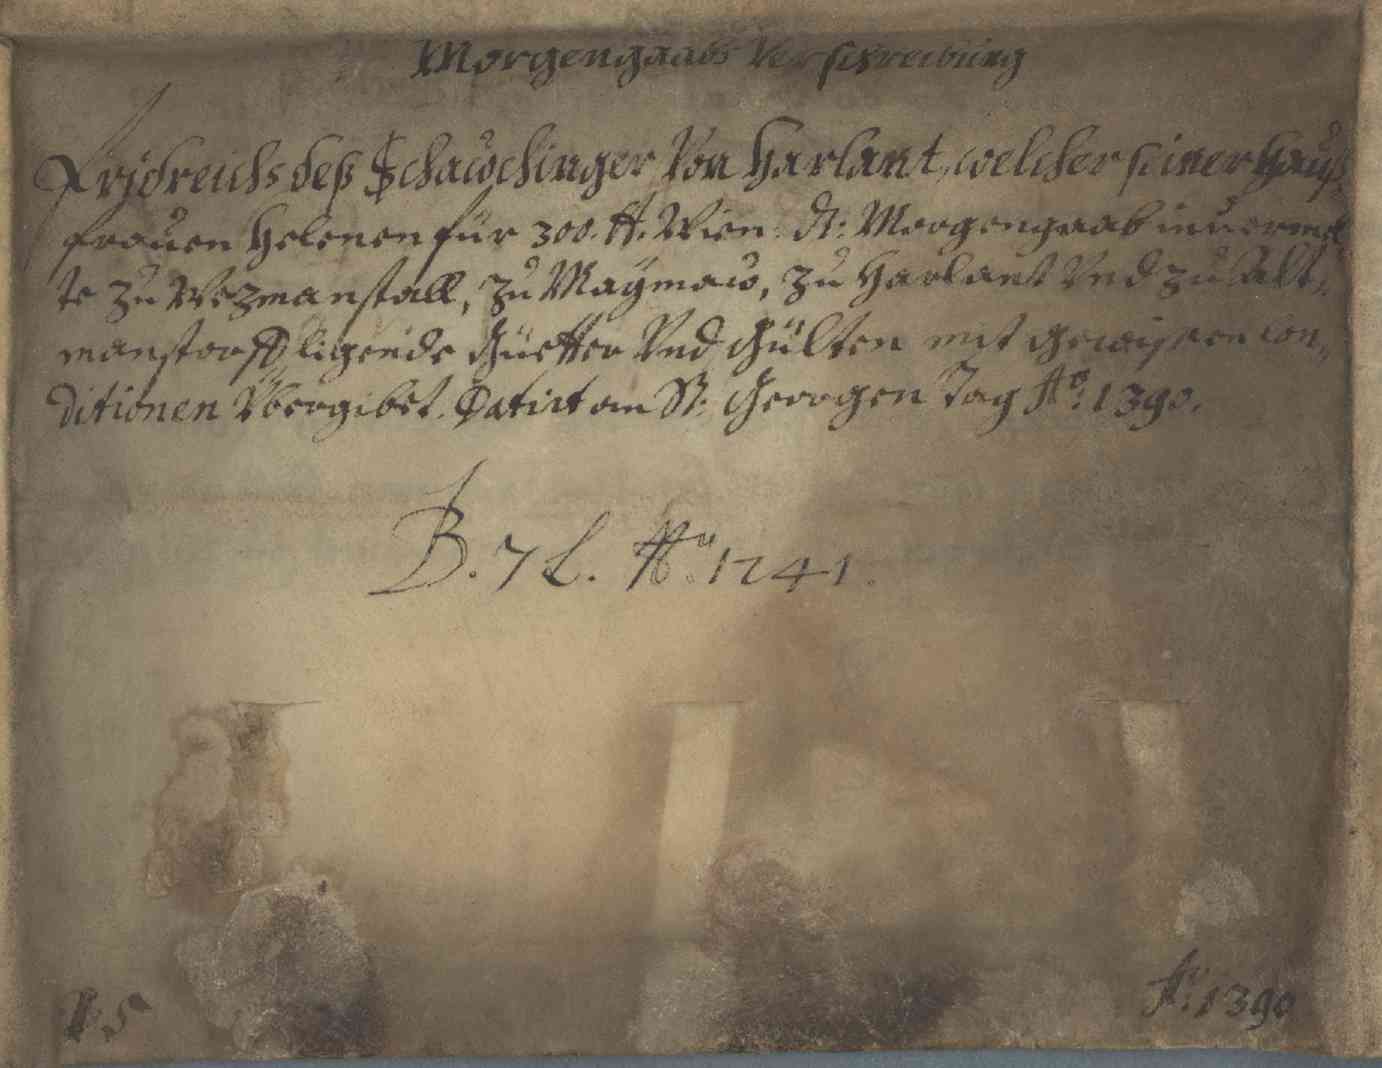 Morgengaabs Verschreibung
Fridreichs deß Schawchinger Von Harlant, welcher seiner Hauß,,
frauen Helenen für 300. ₰. Wien: Morgengaab in
te zu Wezmanstall, zu Maÿmaw, zu Harlant Vnd zu Alt,,
manstorff ligende Güetter Vnd Gülten mit gewissen con,,
ditionen Übergibet. Datirt am St: Georgen Tag Aō: 1390.
B. 7 L. No. 1241.
Aō: 1390